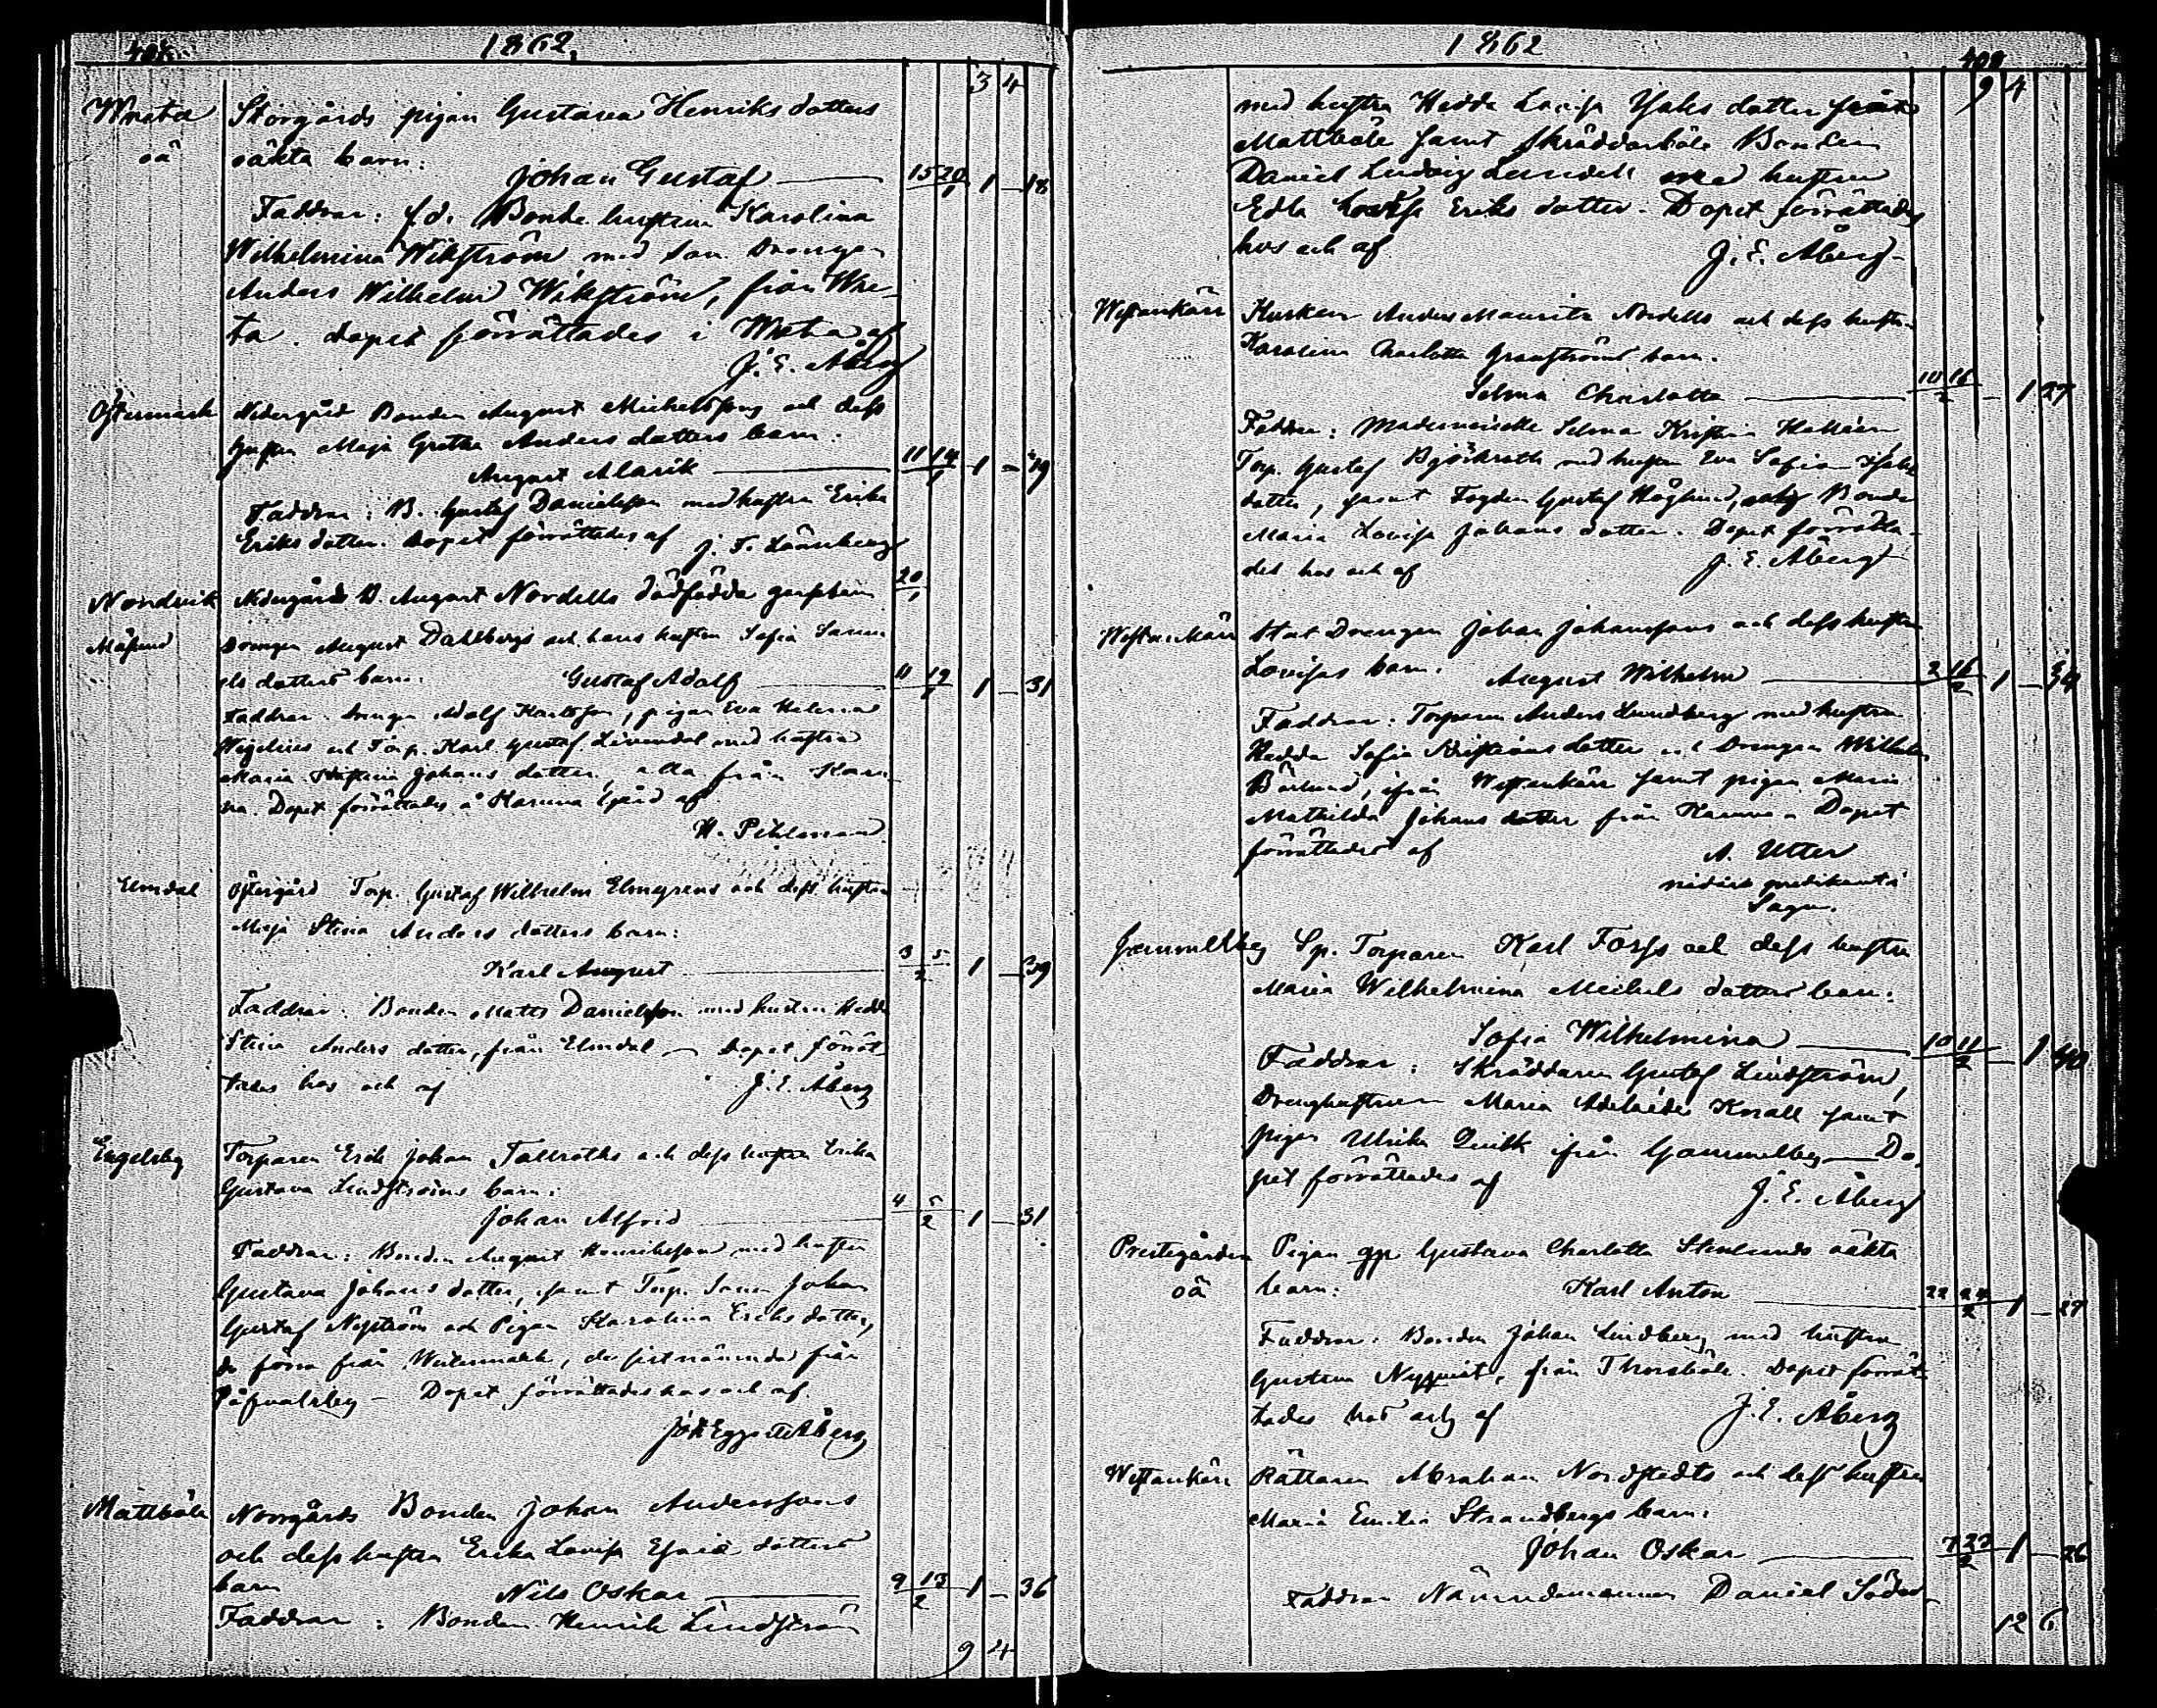 1862.
3 4
Wreta Storgårds pigan Gustava Henriks dotters
oä oäkta barn:
Johan Gustaf 15 20/1 1 – 18
Faddrar: f.d. Bonde hustrun Karolina
Wilhelmina Wikström med son Drengen
Anders Wilhelm Wikström, från Wre-
ta. Dopet förrättades i Wreta af
J. E. Åberg
Östermark Nedergård Bonden August Michelssons och dess
hustru Maja Greta Anders dotters barn.
August Alarik 11 14/1 1 – 29
Faddrar: B. Gustaf Danielsson med hustru Erika
Eriks dotter. Dopet förrättades af J. F. Läänberg
20/1
Nordvik Nedergårds B. August Nordells dödfödda
Drengen August Dahlbergs och hans hustru Sofia Samu
els dotters barn. Gustaf Adolf 11 19/1 1 – 31
Faddrar. Drengen Adolf Karlsson, pigan Eva Helena
och Torp. Karl Gustaf med hustru
Maria Kristina Johans dotter, alla från Karu
na. Dopet förrättades å Karuna Egård af
H. Pihlman
Elmdal Östergård Torp. Gustaf Wilhelm Elmgrens och dess hustru
Maja Stina Anders dotters barn:
Karl August 3 5/2 1 – 39
Faddrar: Bonden Matts Danielsson med hustru Hedda
Stina Anders dotter, från Elmdal – Dopet förrät
tades hos och af J. E. Åberg
Engelsby Torparen Erik Johan Tallroths och dess hustru Erika
Gustava Lindströms barn:
Johan Alfrid 4 5/2 1 – 31
Faddrar: Bonden August Henriksson med hustru
Gustava Johans dotter, samt Torp. Sonen Johan
Gustaf Nyström och Pigan Karolina Eriks dotter,
de förra från Westermark, de sistnämnda från
– Dopet förrättades hos och af
Åberg
Mattböle Norrgårds Bonden Johan Anderssons
och dess hustru Erika Lovisa dotters
barn Nils Oskar 9 13/2 1 – 36
Faddrar: Bonden Henrik Lindström
9 4
1862
409
9 4
med hustru Hedda Lovisa dotter från
Mattböle samt Skräddarböle Bonden
Daniel Ludvig Lundell med hustru
Edla Lovisa Eriks dotter. Dopet förrättades
hos och af J. E. Åberg
Westankärr Kusken Anders Mauritz Nordells och dess hustru
Karolina Charlotta Granströms barn.
Selma Charlotta 10 16/2 – 1 27
Faddrar: Mademoiselle Selma Kristina
Torp. Gustaf Björkroth med hustru Eva Sofia Isaks
dotter, samt Fogden Gustaf Höglund, och Bonde
Maria Lovisa Johans dotter. Dopet förrätta-
des hos och af J. E. Åberg
Westankärr Stat Drengen Johan Johanssons och dess hustru
Lovisas barn. August Wilhelm 2 16/2 1 – 34
Faddrar: Torparen Anders Lundberg med hustru
Hedda Sofia Kristians dotter och Drengen Wilhelm
Bärlund, ifrån Westankärr samt pigan Maria
Mathilda Johans dotter från Karuna. Dopet
förrättades af A. Utter
predikant i
Sagu.
Gammelby Sp. Torparen Karl Forss och dess hustru
Maria Wilhelmina Meikels dotters barn:
Sofia Wilhelmina 10 11/2 – 1 40
Faddrar: Skräddaren Gustaf Lindström,
Drenghustrun Maria Adelaide Knall samt
pigan Ulrika Qvick ifrån Gammelby – Do-
pet förrättades af J. E. Åberg
Prestegården Pigan Gustava Charlotta Stenlunds oäkta
oä barn: Karl Anton 22 24/2 1 – 27
Faddrar: Bonden Johan Lindberg med hustru
Gustava Nyqvist, från Thorsböle. Dopet förrät
tades hos och af J. E. Åberg
Westankärr Rättaren Abraham Nordstedts och dess hustru
Maria Emilia Strandbergs barn:
Johan Oskar 7 23/2 1 – 26
Faddrar Nämndemannen Daniel Söder-
12 6